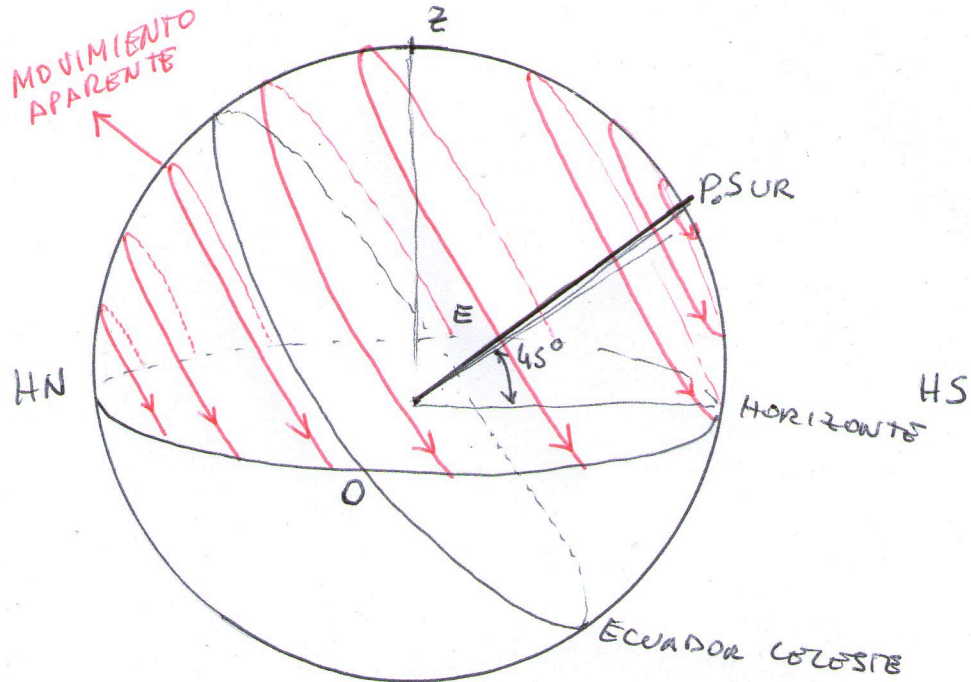 Z
MOVIMIENTO
APARENTE
P.SUR
E
45°
HN
HS
HORIZONTE
O
ECUADOR CELESTE